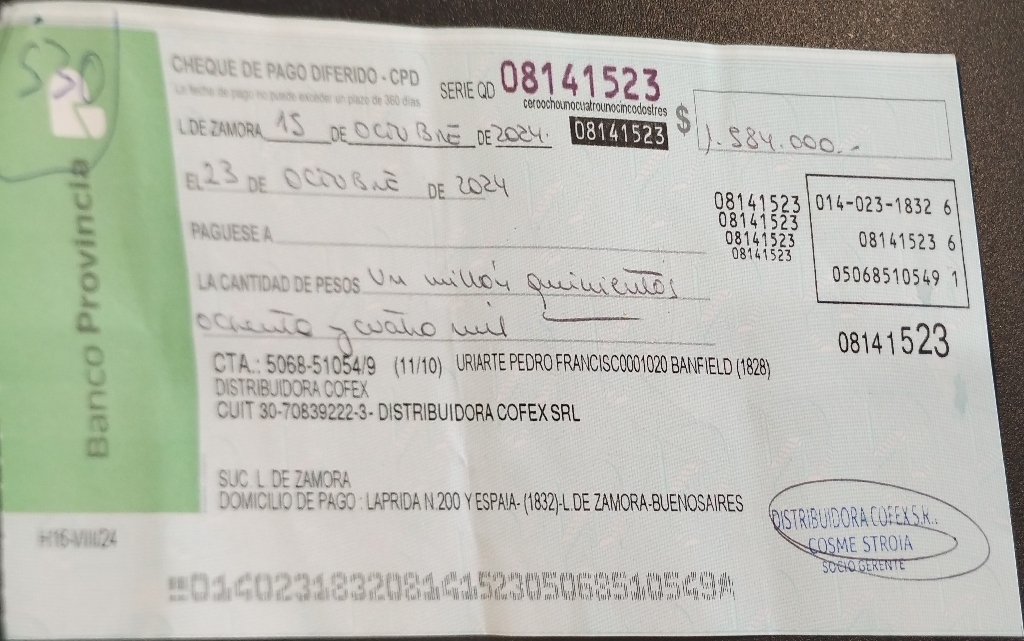 530
CHEQUE DE PAGO DIFERIDO - CPD
SERIE QD 08141523
la fecha de pago no puede exceder un plazo de 360 días
ceroochounocuatrounocincodostres
L.DE ZAMORA 15 DE OCTUBRE DE 2024. 08141523 $ 1.584.000.-
EL 23 DE OCTUBRE DE 2024
08141523
08141523
08141523
08141523
014-023-1832 6
08141523 6
05068510549 1
PAGUESE A
LA CANTIDAD DE PESOS Un millón quinientos
ochenta y cuatro mil
08141523
CTA.: 5068-51054/9 (11/10) URIARTE PEDRO FRANCISCO0001020 BANFIELD (1828)
DISTRIBUIDORA COFEX
CUIT 30-70839222-3- DISTRIBUIDORA COFEX SRL
SUC. L. DE ZAMORA
DOMICILIO DE PAGO : LAPRIDA N.200 Y ESPAIA- (1832)-L.DE ZAMORA-BUENOSAIRES
DISTRIBUIDORA COFEX S.R..
COSME STROIA
SOCIO GERENTE
Banco Provincia
H16-VIII/24
01402318320814152305068510549